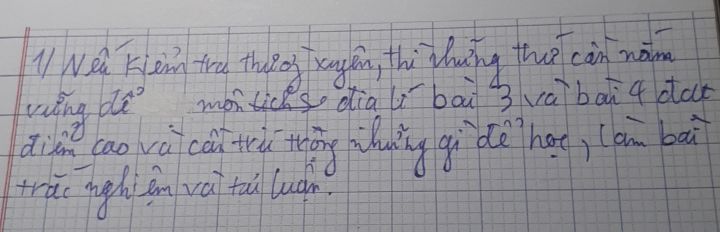 1/ Nếu kiểm tra thường xuyên, thì những thứ cần nắm
vững để môn lịch sử địa lí bài 3 và bài 4 đạt
điểm cao và cần trú trọng những gì để học, làm bài
trắc nghiệm và tự luận.